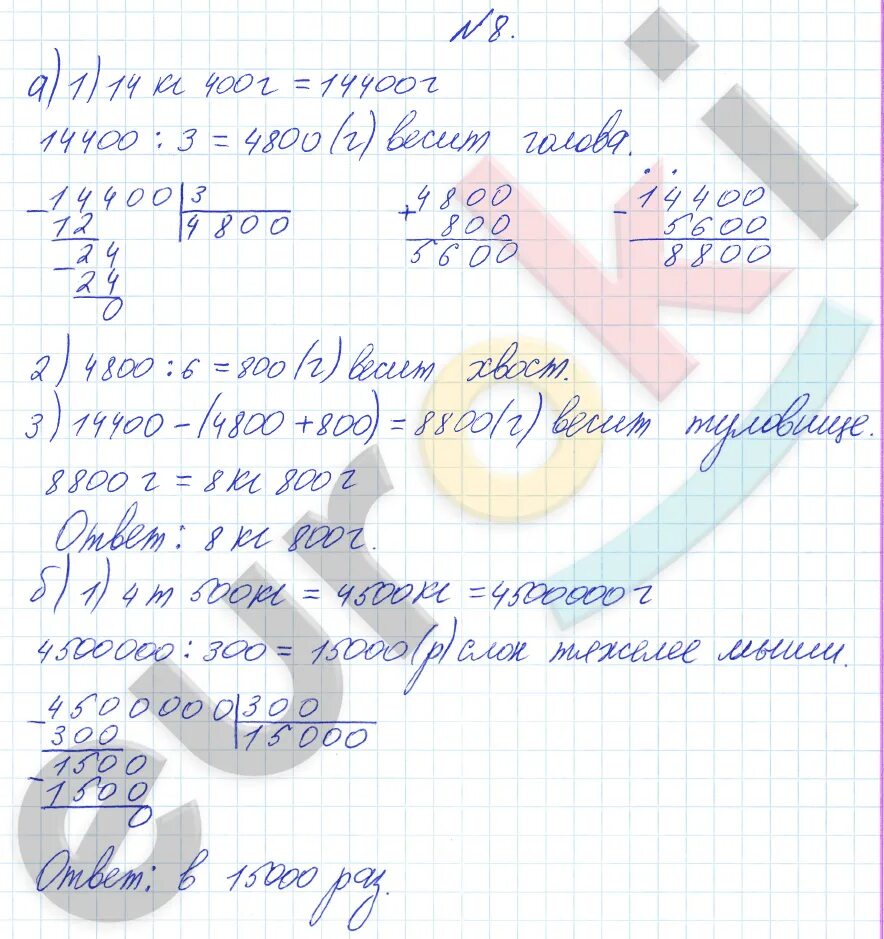 №8.
а) 1) 14 кг 400г = 14400г
14400 : 3 = 4800 (г) весит голова.
14400 | 3
12
4800
24
24
0
+ 4800
800
5600
- 14400
5600
8800
2) 4800 : 6 = 800 (г) весит хвост.
3) 14400 - (4800 + 800) = 8800 (г) весит туловище.
8800 г = 8 кг 800г
Ответ: 8 кг 800г.
б) 1) 4 т 500кг = 4500кг = 4500000 г
4500000 : 300 = 15000 (р) слон тяжелее мыши.
4500000 | 300
300
15000
1500
1500
0
Ответ: в 15000 раз.
euroki